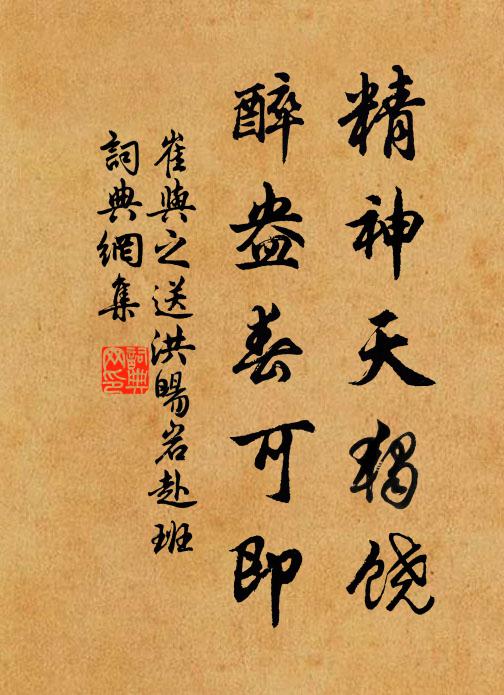 精神天独饶
醉盎春可即
崔與之送洪暘岩赴班
詞典網集
詞典網印